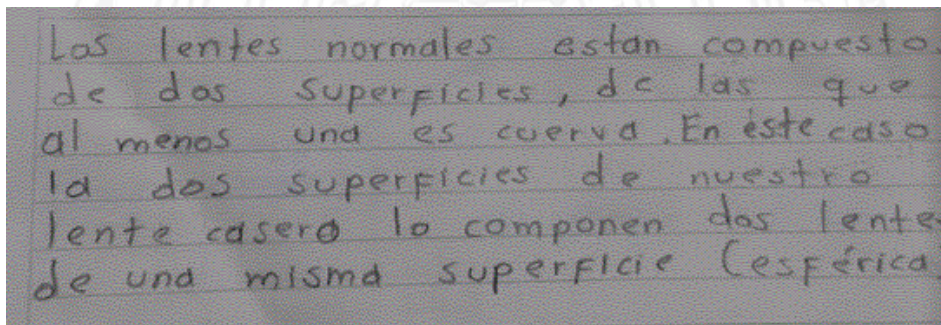 Los lentes normales estan compuesto.
de dos superficies, de las que
al menos una es cuerva. En éste caso
la dos superficies de nuestro
lente casero lo componen dos lentes
de una misma superficie (esférica